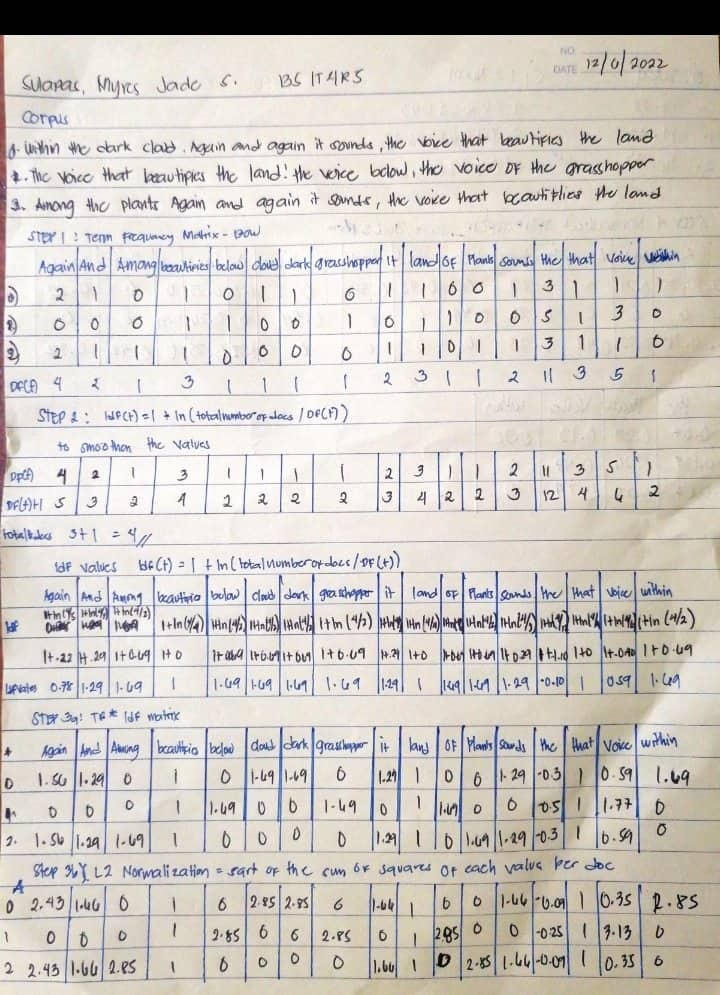 NO.
DATE 12/6/2022
Sulapas, Myres Jade S. BS IT4R5
Corpus
0. Within the dark cloud. Again and again it sounds, the voice that beautifies the land
1. The voice that beautifies the land! the voice below, the voice of the grasshopper
2. Among the plants Again and again it sounds, the voice that beautiplies the land
STEP 1 : Term Frequency Matrix - BOW
Again And Among beautifies below cloud dark grasshopper It land OF Plants sounds the that Voice Within
0) 2 1 0 1 0 1 1 0 1 1 0 0 1 3 1 1 1
1) 0 0 0 1 1 0 0 1 0 1 1 0 0 5 1 3 0
2) 2 1 1 1 0 0 0 0 1 1 0 1 1 3 1 1 0
DF(t) 4 2 1 3 1 1 1 1 2 3 1 1 2 11 3 5 1
STEP 2 : IdF(t) = 1 + ln (total number of docs / DF(t))
to smoothen the values
DF(t) 4 2 1 3 1 1 1 1 2 3 1 1 2 11 3 5 1
DF(t)+1 5 3 2 4 2 2 2 2 3 4 2 2 3 12 4 6 2
total # docs 3+1 = 4//
IdF values Idf(t) = 1 + ln (total number of docs / DF(t))
Again And Among beautifies below cloud dark grasshopper it land OF Plants sounds the that Voice within
Idf 1+ln(4/5) 1+ln(4/3) 1+ln(4/2) 1+ln(4/4) 1+ln(4/2) 1+ln(4/2) 1+ln(4/2) 1+ln(4/2) 1+ln(4/3) 1+ln(4/4) 1+ln(4/2) 1+ln(4/2) 1+ln(4/3) 1+ln(4/12) 1+ln(4/4) 1+ln(4/6) 1+ln(4/2)
1+-.22 1+.29 1+0.69 1+0 1+0.69 1+0.69 1+0.69 1+0.69 1+.29 1+0 1+0.69 1+0.69 1+0.29 1+-1.10 1+0 1+-0.40 1+0.69
Idf values 0.78 1.29 1.69 1 1.69 1.69 1.69 1.69 1.29 1 1.69 1.69 1.29 -0.10 1 0.59 1.69
STEP 3a: TF * Idf matrix
Again And Among beautifies below cloud dark grasshopper it land OF Plants Sounds the that Voice within
0 1.56 1.29 0 1 0 1.69 1.69 0 1.29 1 0 0 1.29 -0.3 1 0.59 1.69
1. 0 0 0 1 1.69 0 0 1.69 0 1 1.69 0 0 -0.5 1 1.77 0
2. 1.56 1.29 1.69 1 0 0 0 0 1.29 1 0 1.69 1.29 -0.3 1 0.59 0
Step 3b: L2 Normalization = sqrt of the sum of squares of each value per doc
0 2.43 1.66 0 1 0 2.85 2.85 0 1.66 1 0 0 1.66 -0.09 1 0.35 2.85
1 0 0 0 1 2.85 0 0 2.85 0 1 2.85 0 0 -0.25 1 3.13 0
2 2.43 1.66 2.85 1 0 0 0 0 1.66 1 0 2.85 1.66 -0.09 1 0.35 0